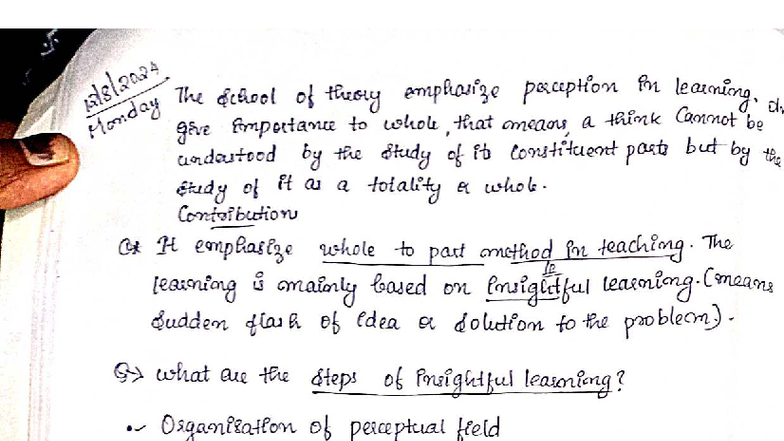 12/8/2024
Monday
The School of theory emphasize perception in learning.
give importance to whole, that means, a think cannot be
understood by the study of its constituent parts but by the
study of it as a totality or whole.
Contribution
It emphasize whole to part method in teaching. The
learning is mainly based on insightful learning. (means
sudden flash of idea or solution to the problem).
Q→ what are the steps of insightful learning?
•~ Organisation of perceptual field